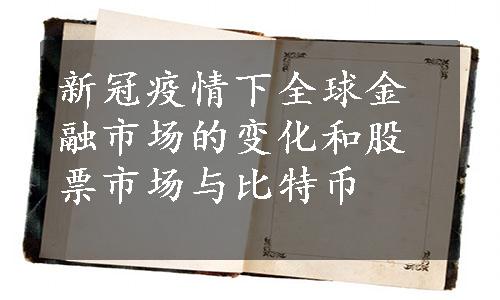 新冠疫情下全球金
融市场的变化和股
票市场与比特币